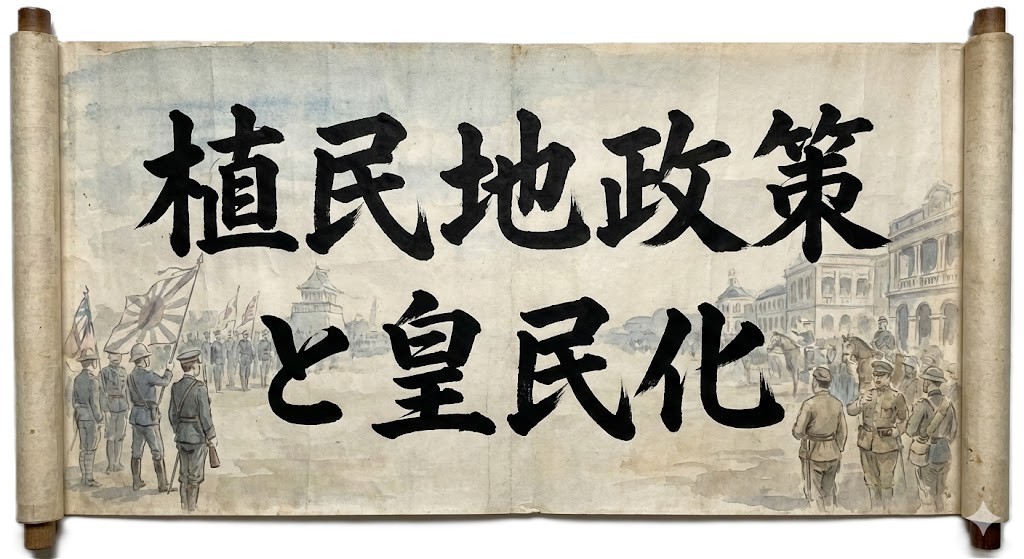 植民地政策
と皇民化